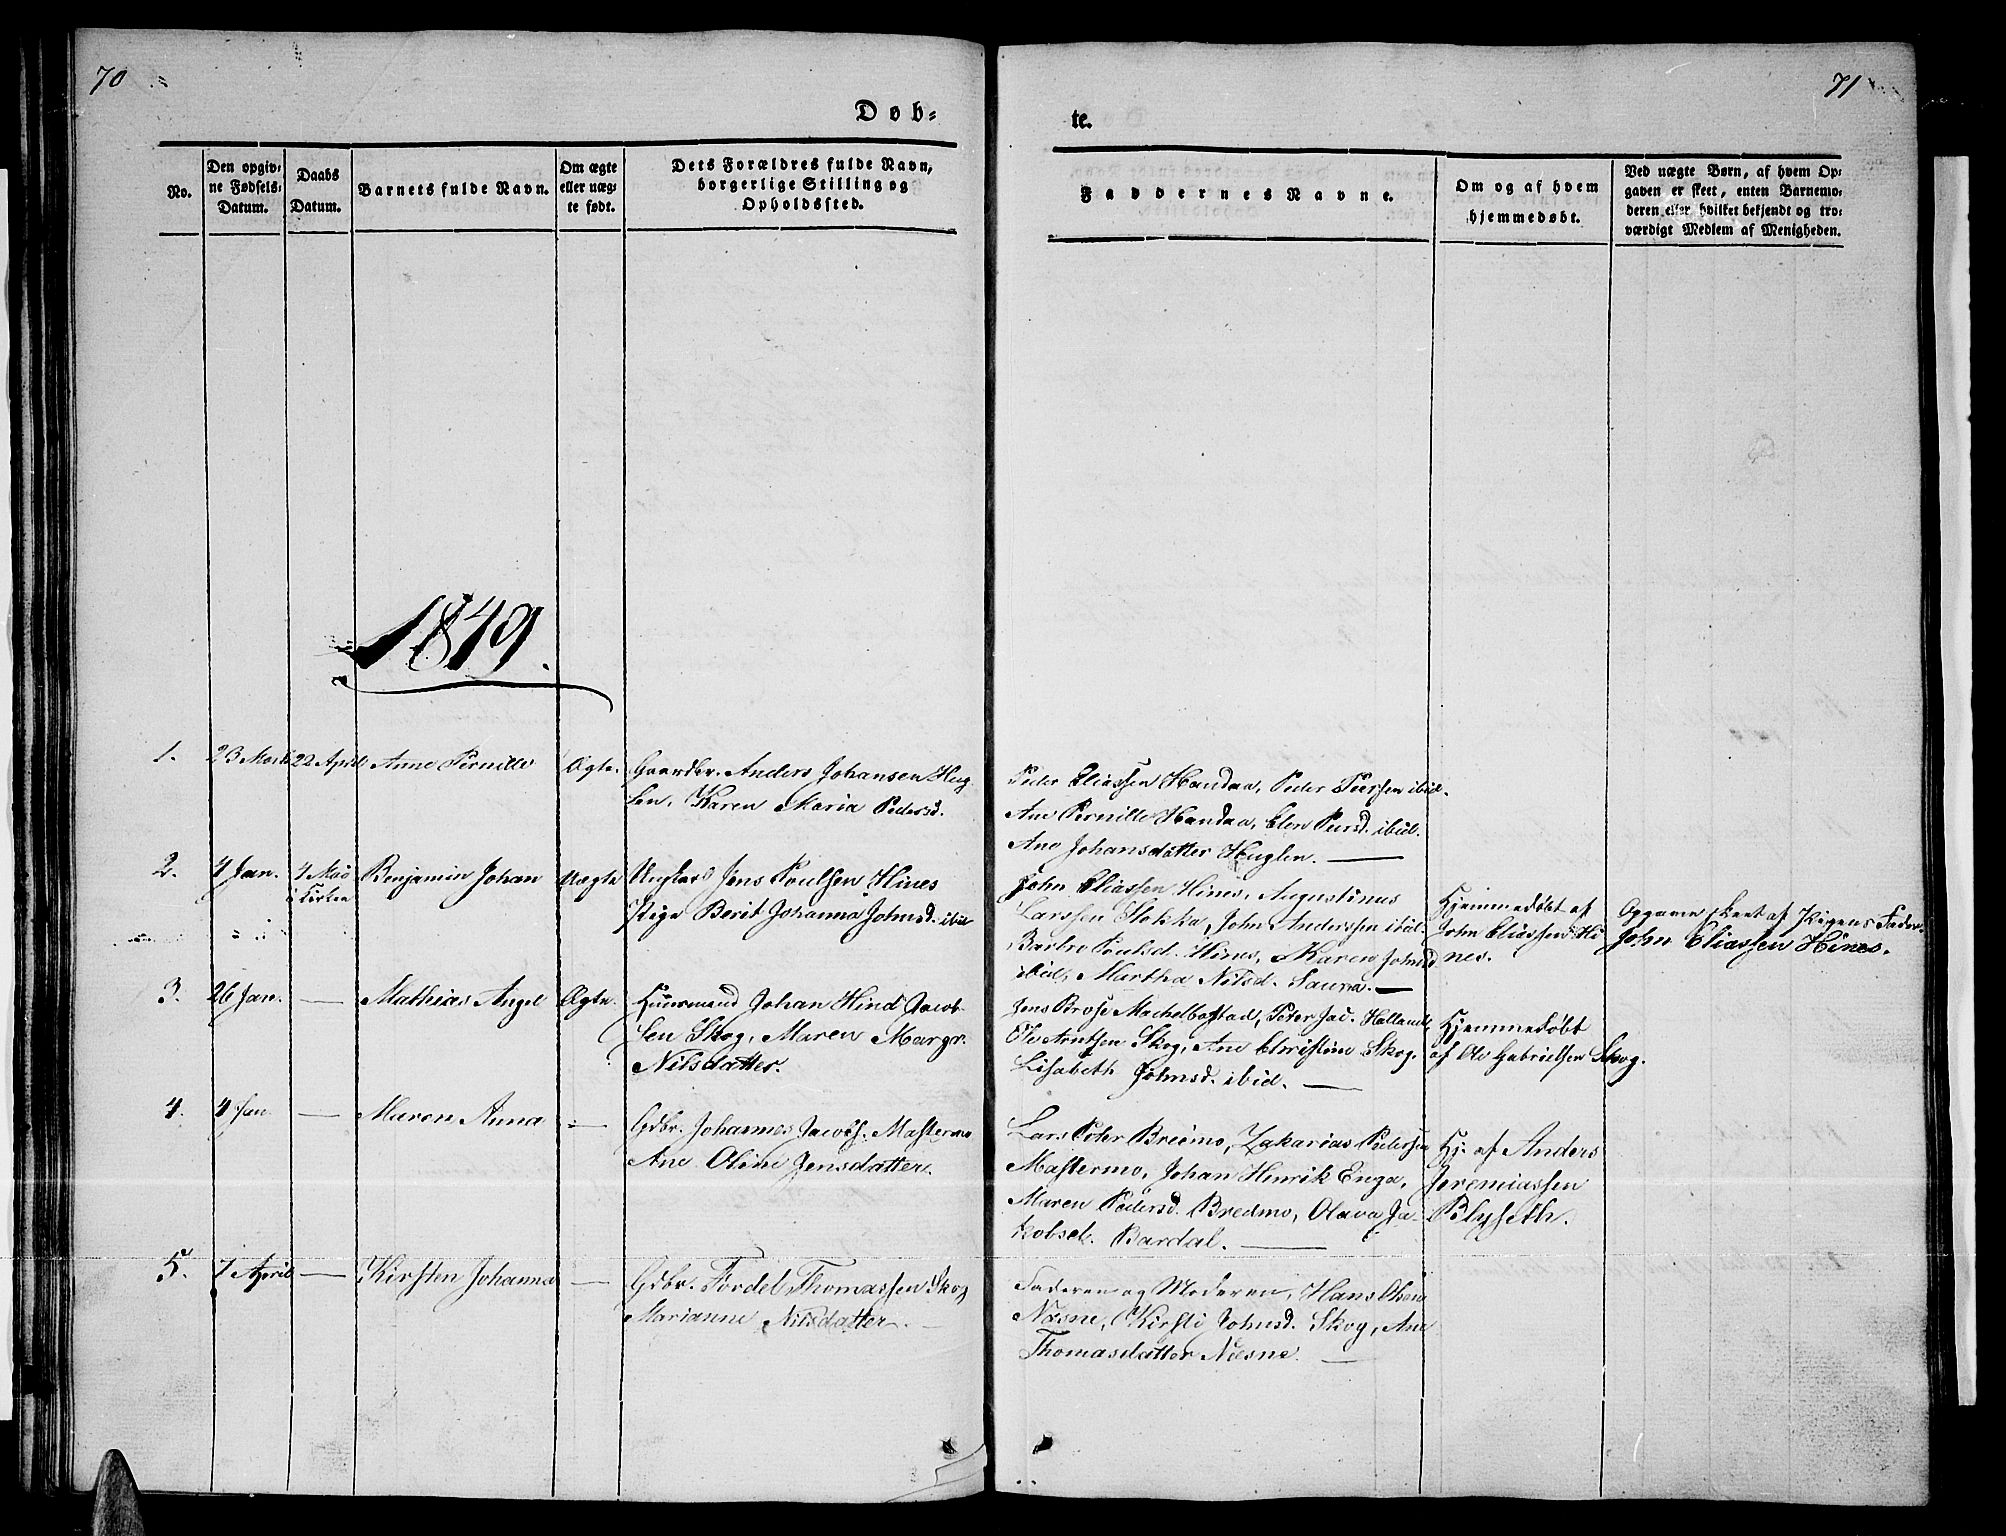 70
71
Døb=
te.
No.
Den opgiv=
ne Fødsels=
Datum.
Daabs
Datum.
Barnets fulde Navn.
Om ægte
eller uæg=
te født.
Dets Forældres fulde Navn,
borgerlige Stilling og
Opholdssted.
Faddernes Navne.
Om og af hvem
hjemmedøbt.
Ved uægte Børn, af hvem Op=
gaven er skeet, enten Barnemo=
deren eller hvilket bekjendt og tro=
værdigt Medlem af Menigheden.
1849.
1.
23 Marts
22 April
Anne Pernille
Ægte
Gaardbr. Anders Johansen Hug
len, Karen Maria Pedersd.
Peder Eliassen Handaa, Peder Peersen ibid.
Ane Pernille Handaa, Elen Peersd. ibid.
Ane Johansdatter Huglen. —
2.
4 Jan.
4 Mai
i Kirken
Benjamin Johan
Uægte
Ungkarl Jens Poulsen Hines
Pige Berit Johanna Johnsd. ibid
John Eliassen Hines, Augustinus
Larssen Stokka, John Anderssen ibid.
Barbro Poulsd. Hines, Maren Johnsd
ibid, Martha Nilsd. Saura. —
Hjemmedøbt af
John Eliassen Hi
nes.
Opgaven skeet af Pigens Fader
John Eliassen Hines.
3.
26 Jan.
—
Mathias Angel
Ægte
Huusmand Johan Hind Jacob
sen Skog, Maren Margr.
Nilsdatter.
Jens Brose Machelbostad, Peter Jac. Helland,
Ole Arntsen Skog, Ane Christine Skog,
Lisabeth Johnsd. ibid. —
Hjemmedøbt
af Ole Gabrielsen Skog.
4.
4 Jan
—
Maren Anna
—
Gdbr. Johannes Jacobs. Mastermo
Ane Oline Jensdatter.
Lars Peter Bredmo, Zakarias Pedersen
Mastermo, Johan Henrik Enga,
Maren Pedersd. Bredmo, Olava Ja-
kobsd. Bardal. —
Hj. af Anders
Jeremiassen
Blyseth.
5.
7 April
—
Kirsten Johanna
—
Gdbr. Fordel Thomassen Skog
Marianne Nilsdatter. —
Faderen og Moderen, Hans Olsen
Næsne, Kirsti Johnsd. Skog, Ane
Thomasdatter Næsne. —